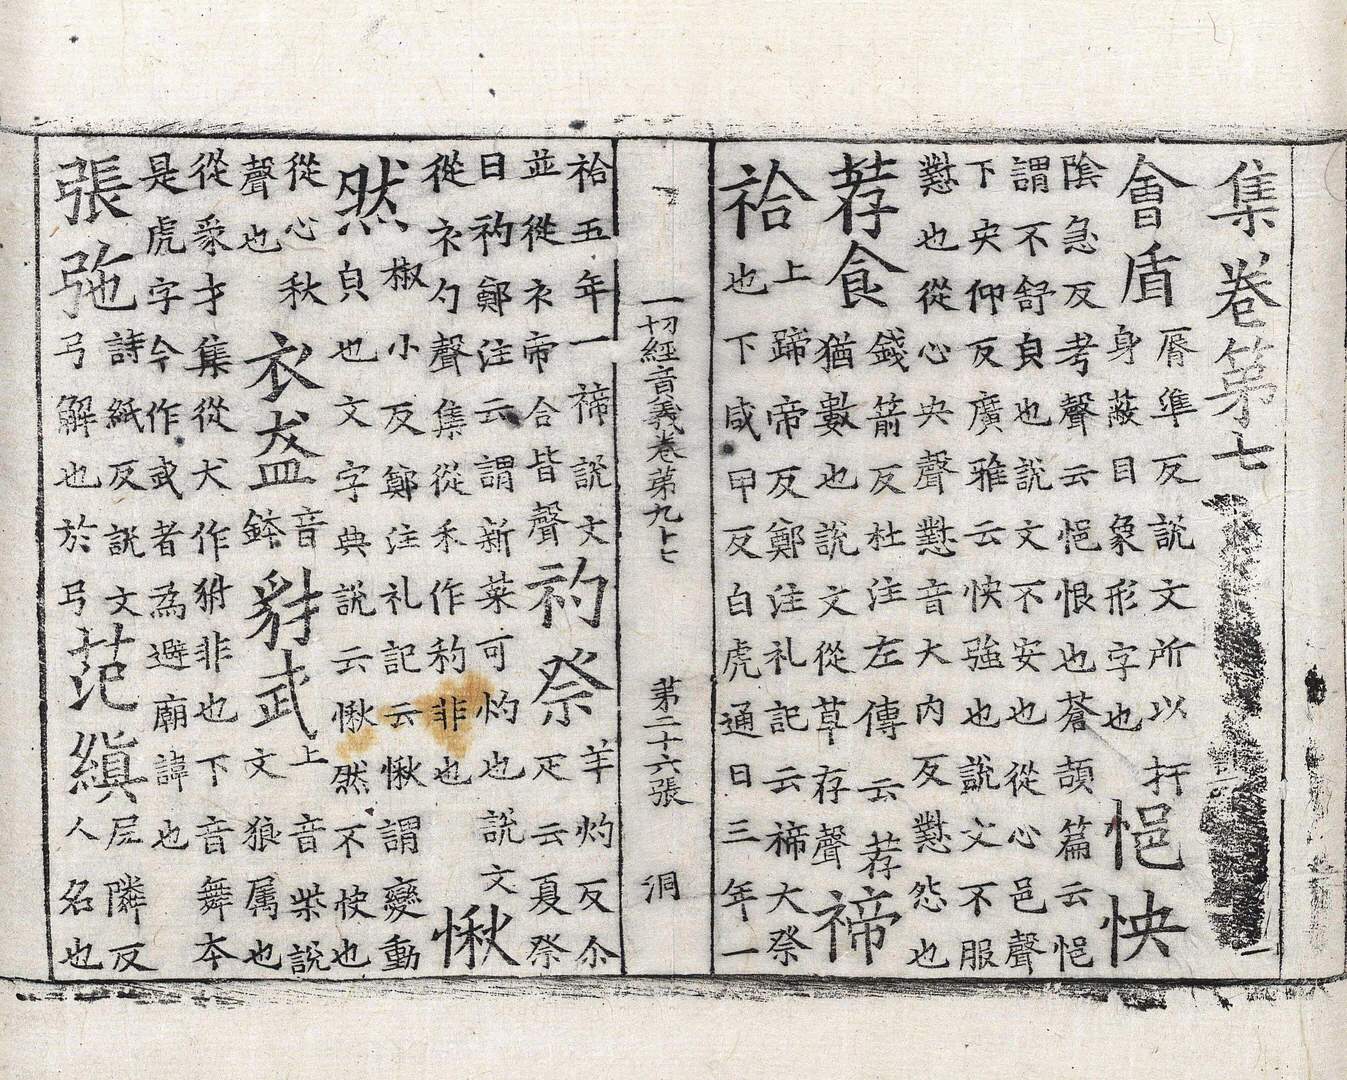 集卷第七
會盾脣準反說文所以扞身蔽目象形字也悒怏
陰急反考聲云悒恨也蒼頡篇云悒
謂不舒皃也說文不安也從心邑聲
下央仰反廣雅云怏強也說文不服
懟也從心央聲懟音大內反懟怨也
荐食錢箭反杜注左傳云荐猶數也說文從草存聲禘
祫上蹄帝反鄭注礼記云禘大祭
也下咸甲反白虎通曰三年一
一切經音義卷第九十七 第二十六張 洞
祫五年一禘說文並從衤帝合皆聲礿祭羊灼反尒疋云夏祭
曰礿鄭注云謂新菜可灼也說文
從衤勺聲集從禾作礿非也愀
然椒小反鄭注礼記云愀謂變動
皃也文字典說云愀然不悅也
從心秋聲也衣盋音鉢豺武上音柴說文狼属也
從豸才集從犬作犲非也下音舞本
是虎字今作武者為避廟諱也
張弛詩紙反說文弓解也於弓范縝尼隣反人名也